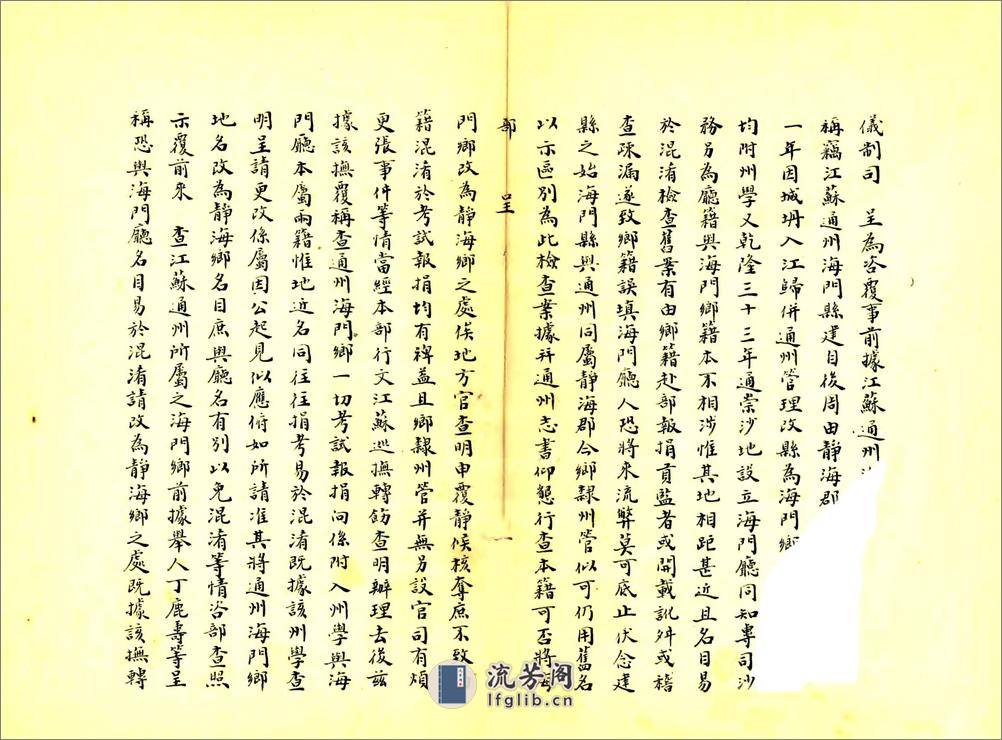 儀制司 呈為咨覆事前據江蘇通州
稱竊江蘇通州海門縣建自後周由靜海郡
一年因城坍入江歸併通州管理改縣為海門鄉
均附州學又乾隆三十三年通崇沙地設立海門廳同知專司沙
務另為廳籍與海門鄉籍本不相涉惟其地相距甚近且名目易
於混淆檢查舊案有由鄉籍赴部報捐貢監者或開載訛舛或稽
查疎漏遂致鄉籍誤填海門廳人恐將來流弊莫可底止伏念建
縣之始海門縣與通州同屬靜海郡今鄉隸州管似可仍用舊名
以示區別為此檢查案據并通州志書仰懇行查本籍可否將海
部 呈 一
門鄉改為靜海鄉之處俟地方官查明申覆靜候核奪庶不致
籍混淆於考試報捐均有裨益且鄉隸州管并無另設官司有煩
更張事件等情當經本部行文江蘇巡撫轉飭查明辦理去後茲
據該撫覆稱查通州海門鄉一切考試報捐向係附入州學與海
門廳本屬兩籍惟地近名同往往捐考易於混淆既據該州學查
明呈請更改係屬因公起見似應俯如所請准其將通州海門鄉
地名改為靜海鄉名目庶與廳名有別以免混淆等情咨部查照
示覆前來 查江蘇通州所屬之海門鄉前據舉人丁鹿壽等呈
稱恐與海門廳名目易於混淆請改為靜海鄉之處既據該撫轉
流芳阁
lfglib.cn